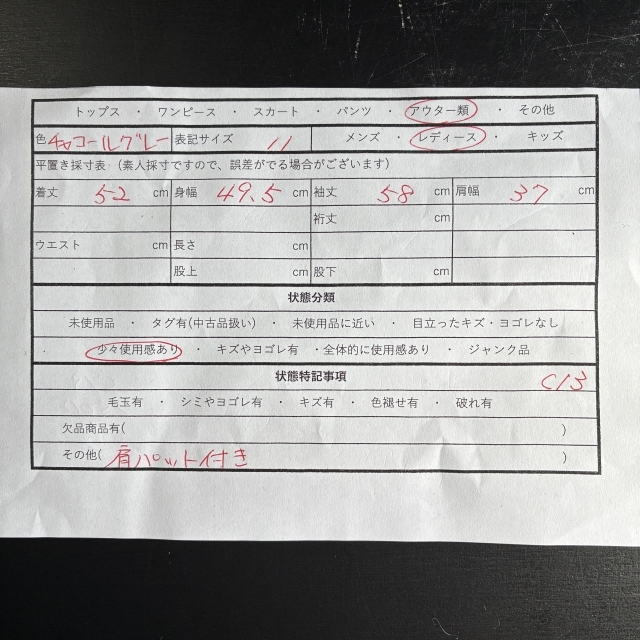 トップス ・ ワンピース ・ スカート ・ パンツ ・ アウター類 ・ その他
色 チャコールグレー 表記サイズ 11 メンズ ・ レディース ・ キッズ
平置き採寸表 (素人採寸ですので、誤差がでる場合がございます)
着丈 52 cm 身幅 49.5 cm 袖丈 58 cm 肩幅 37 cm
裄丈 cm
ウエスト cm 長さ cm
股上 cm 股下 cm
状態分類
未使用品 ・ タグ有(中古品扱い) ・ 未使用品に近い ・ 目立ったキズ・ヨゴレなし
少々使用感あり ・ キズやヨゴレ有 ・全体的に使用感あり ・ ジャンク品
状態特記事項
C13
毛玉有 ・ シミやヨゴレ有 ・ キズ有 ・ 色褪せ有 ・ 破れ有
欠品商品有( )
その他( 肩パット付き )